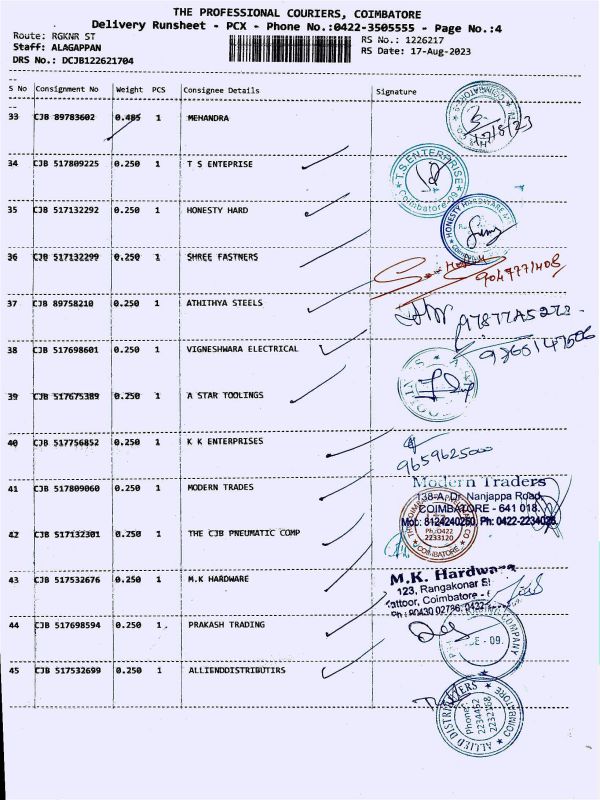 THE PROFESSIONAL COURIERS, COIMBATORE
Delivery Runsheet - PCX - Phone No.:0422-3505555 - Page No.:4
Route: RGKNR ST
RS No.: 1226217
Staff: ALAGAPPAN
RS Date: 17-Aug-2023
DRS No.: DCJB122621704
S No Consignment No Weight PCS Consignee Details Signature
33 CJB 89783602 0.485 1 MEHANDRA
17/8/23
34 CJB 517809225 0.250 1 T S ENTEPRISE
T.S. ENTERPRISE
Coimbatore-09
35 CJB 517132292 0.250 1 HONESTY HARD
HONESTY HARDWARE
36 CJB 517132299 0.250 1 SHREE FASTNERS
9047771408
37 CJB 89758210 0.250 1 ATHITHYA STEELS
38 CJB 517698601 0.250 1 VIGNESHWARA ELECTRICAL
39 CJB 517675389 0.250 1 A STAR TOOLINGS
40 CJB 517756852 0.250 1 K K ENTERPRISES
9659625000
41 CJB 517809060 0.250 1 MODERN TRADES
Modern Traders
138-A, Dr. Nanjappa Road,
COIMBATORE - 641 018.
Mob: 8124240250, Ph: 0422-2234026
42 CJB 517132301 0.250 1 THE CJB PNEUMATIC COMP
Ph:0422
2233120
COIMBATORE
43 CJB 517532676 0.250 1 M.K HARDWARE
M.K. Hardware
123, Rangakonar St
Kattoor, Coimbatore -
Ph : 90430 02786, 0422-
44 CJB 517698594 0.250 1 PRAKASH TRADING
COMPANY
CBE - 09.
45 CJB 517532699 0.250 1 ALLIENDDISTRIBUTIRS
ALLIED DISTRIBUTERS
Phone:
2234462
2232168
COIMBATORE